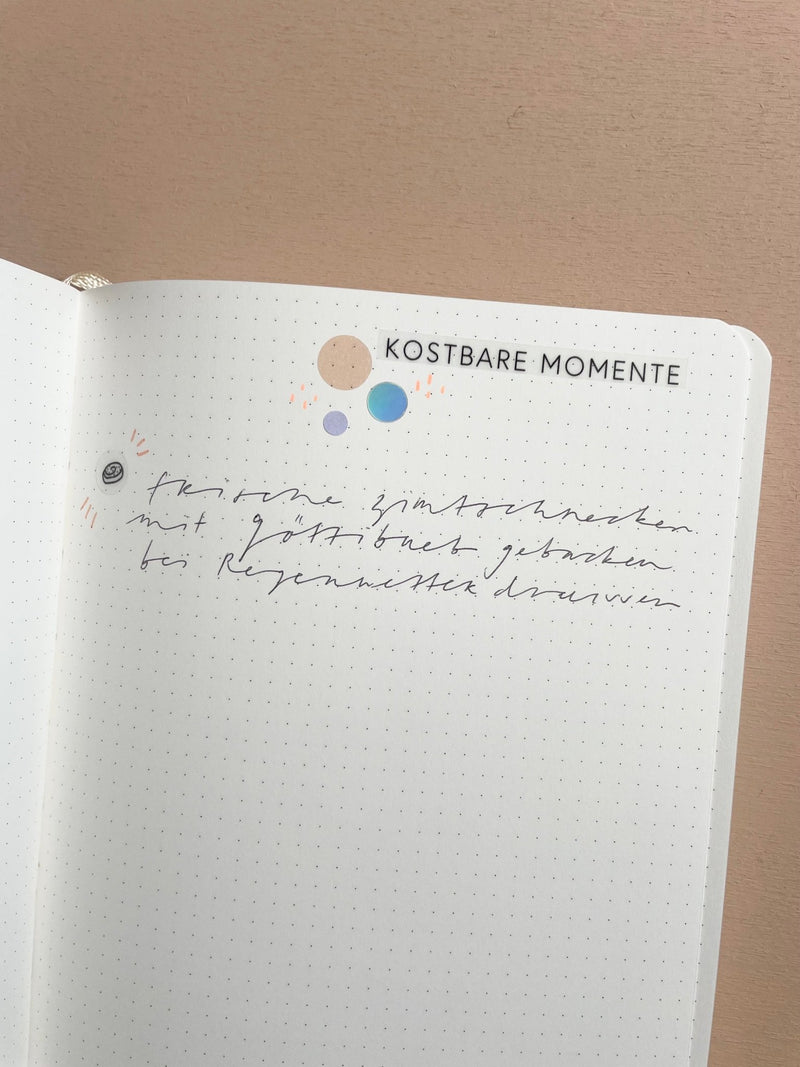 KOSTBARE MOMENTE
frische zimtschnecken
mit göttibueb gebacken
bei Regenwetter draussen